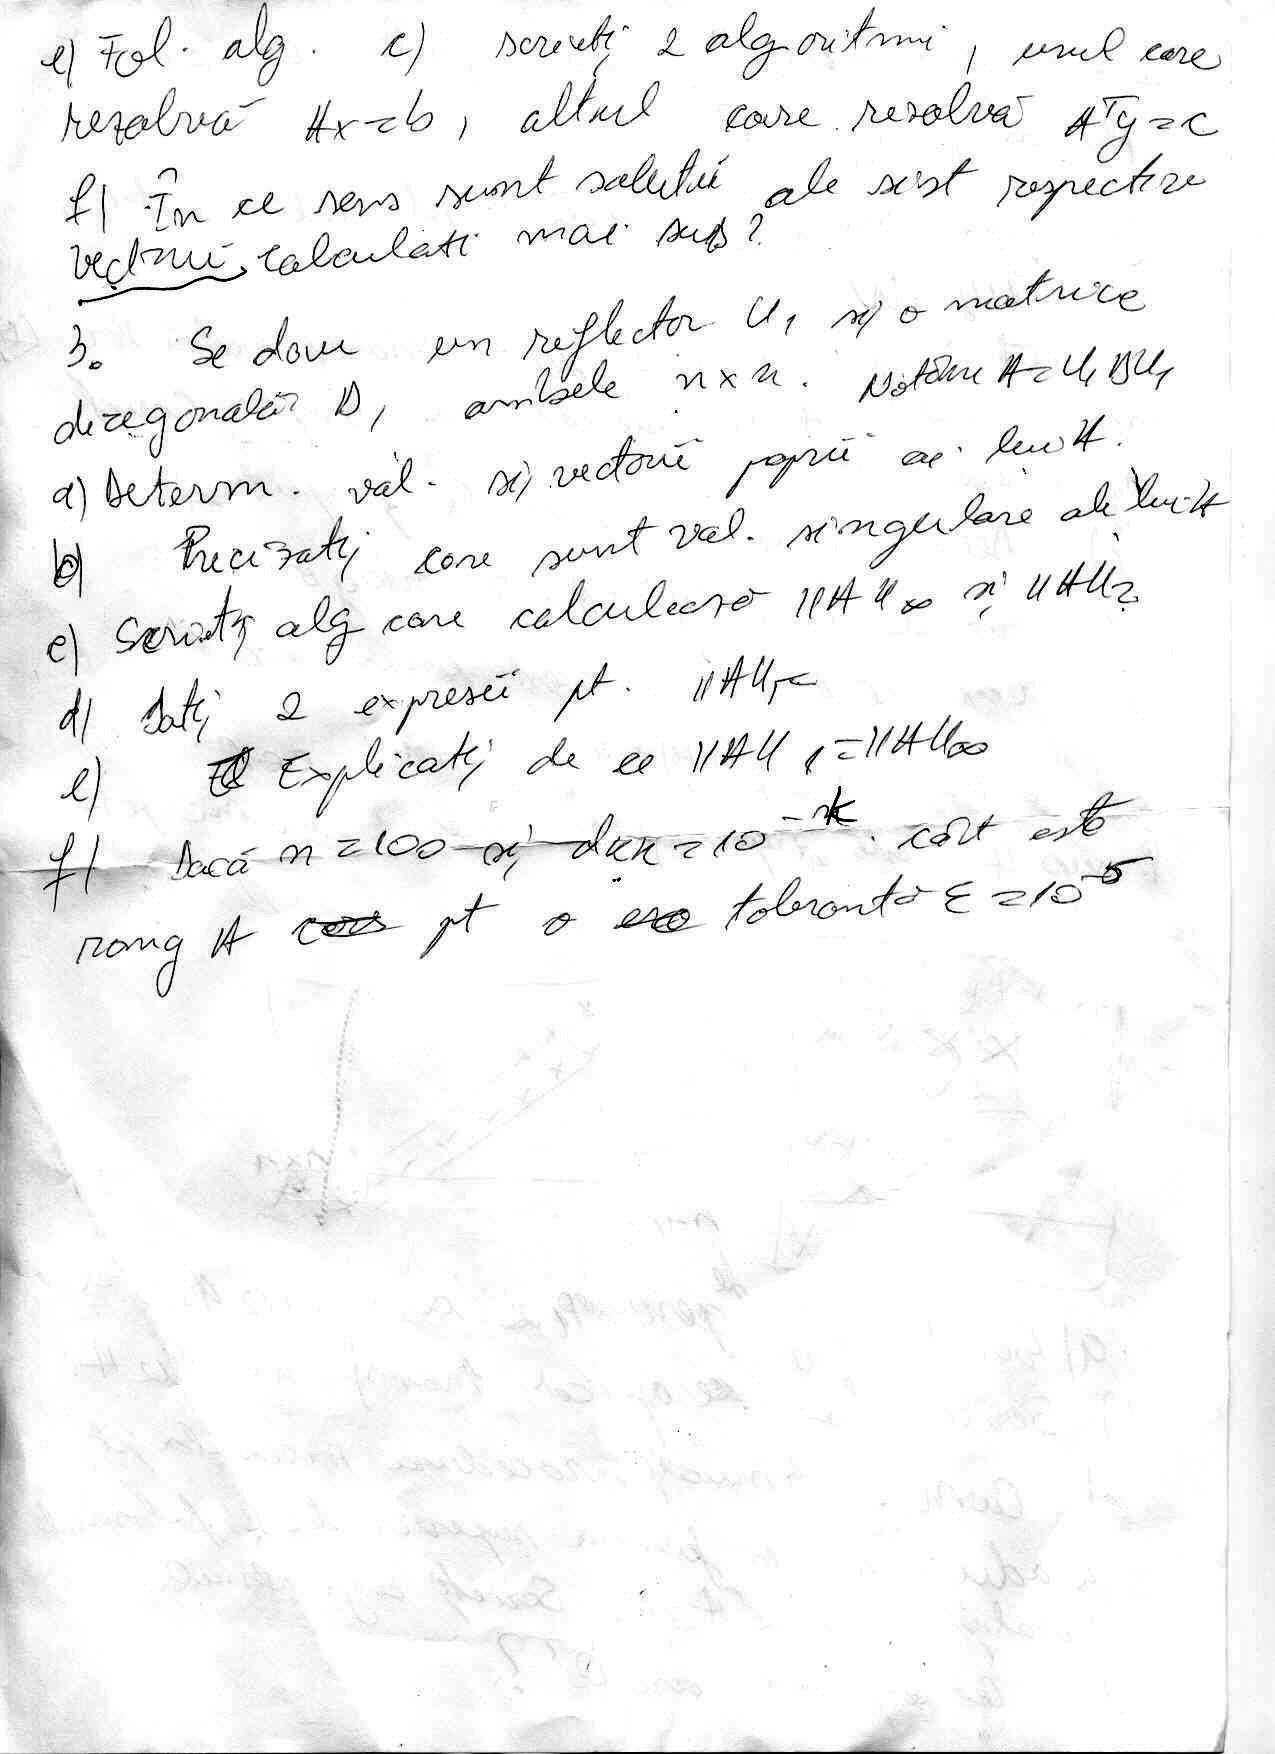 e) Fol. alg. c) scrieți 2 algoritmi, unul care
rezolvă Ax=b, altul care rezolvă Aᵀy=c
f) În ce sens sunt soluții ale sist respective
vectorii calculați mai sus?
3. Se dau un reflector U₁ și o matrice
diagonală D, ambele n×n. Notăm A=U₁DU₁
a) Determ. val. și vectorii proprii ai lui A.
b) Precizați care sunt val. singulare ale lui A
c) Scrieți alg care calculează ||A||∞ și ||A||₂
d) Dați 2 expresii pt. ||A||F
e) Explicați de ce ||A||₁=||A||∞
f) Dacă n=100 și dkk=10⁻ᵏ. cât este
rang A pt o toleranță ε=10⁻⁵